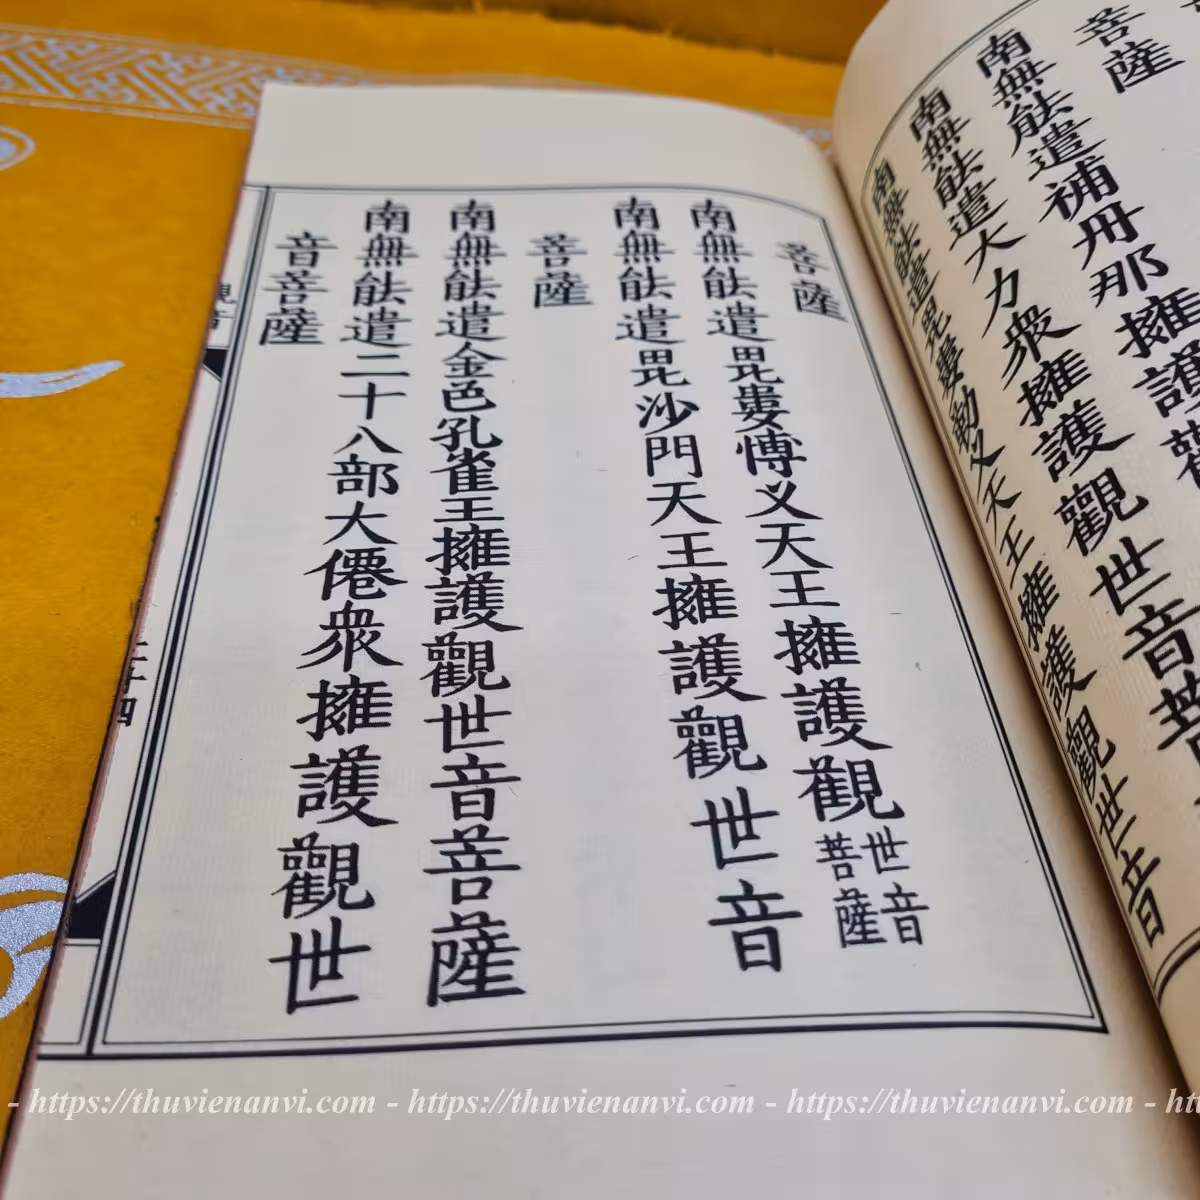 菩薩
南無䏻遣補丹那擁護
南無䏻遣大力衆擁護觀世音菩
南無䏻遣毘婁勒义天王擁護觀世音
菩薩
南無䏻遣毘婁愽义天王擁護觀世音菩薩
南無䏻遣毘沙門天王擁護觀世音
菩薩
南無䏻遣金色孔雀王擁護觀世音菩薩
南無䏻遣二十八部大僊衆擁護觀世
音菩薩
- https://thuvienanvi.com - https://thuvienanvi.com - https://thuvienanvi.com - ht